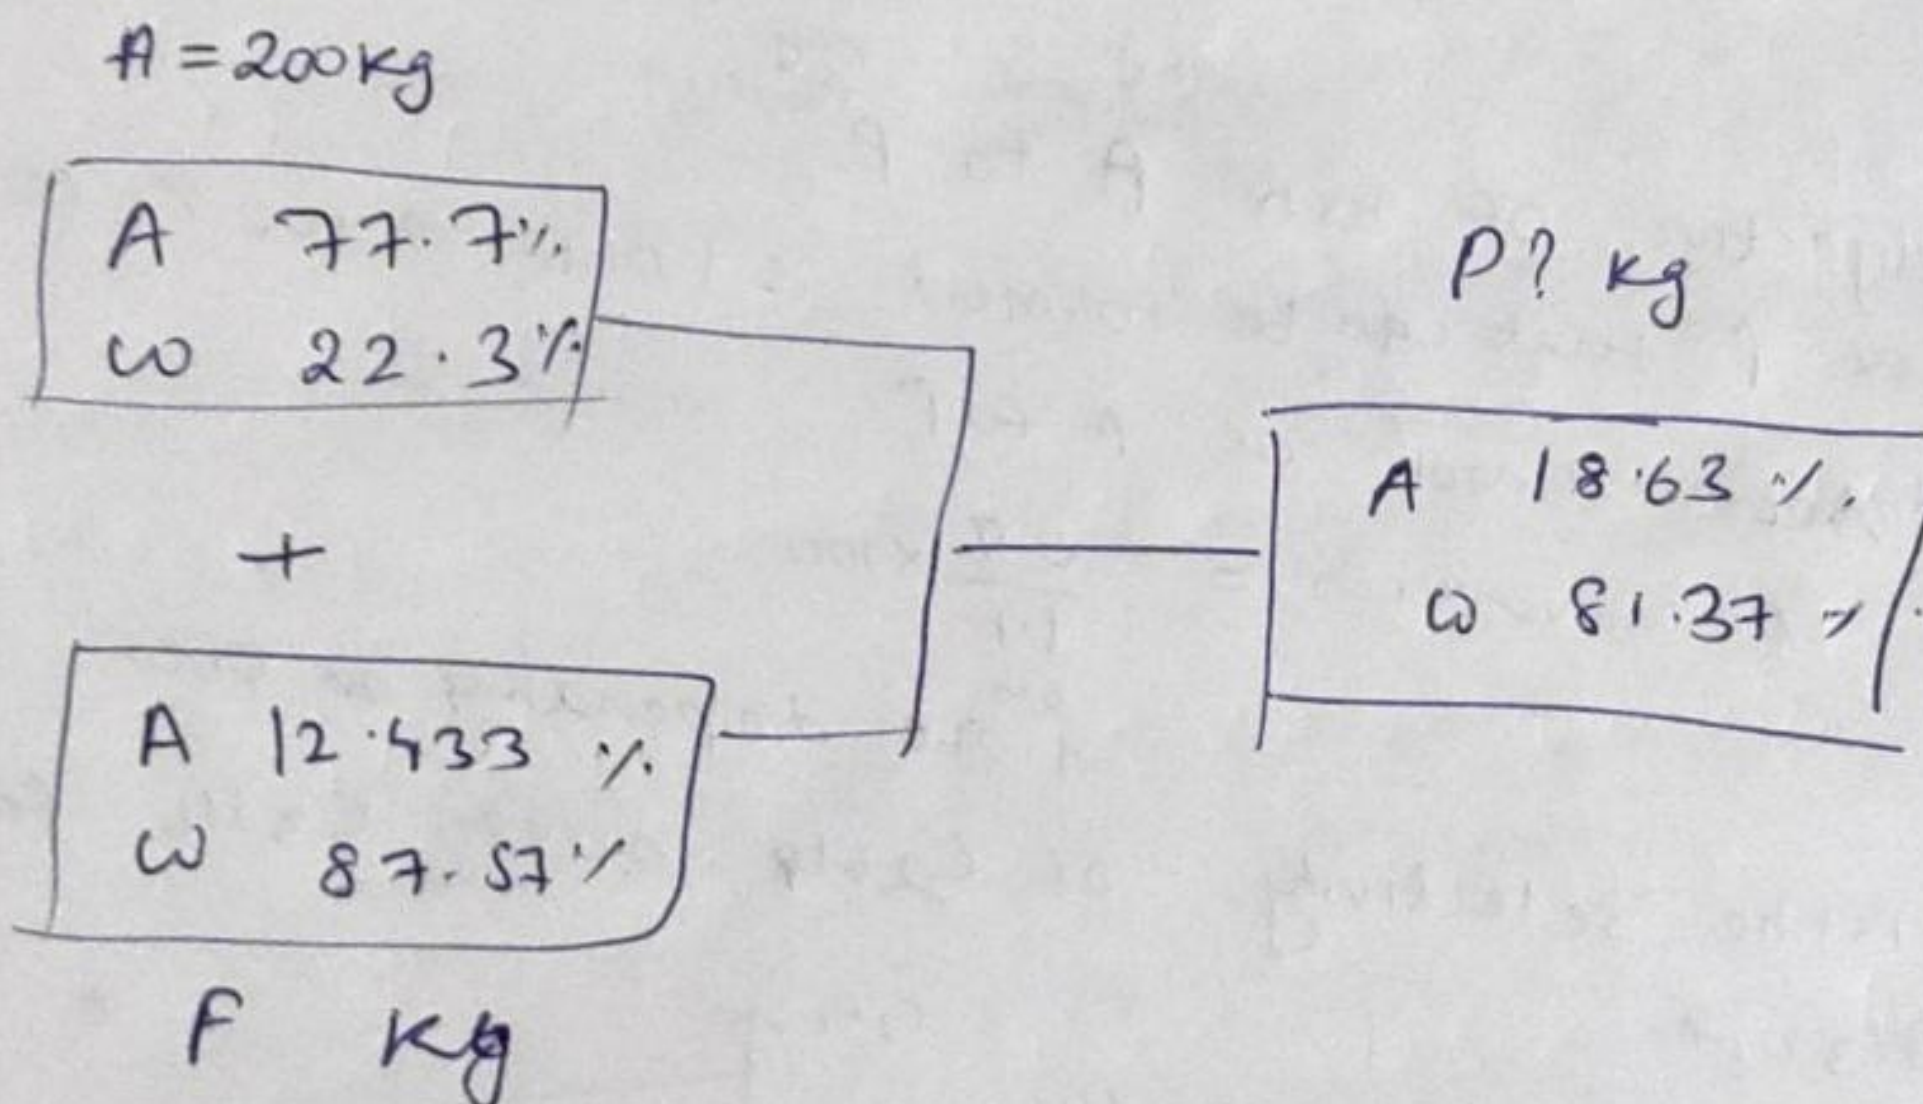 A = 200kg
A 77.7%
W 22.3%
+
A 12.433 %
W 87.57%
F kg
P? kg
A 18.63 %.
W 81.37 %